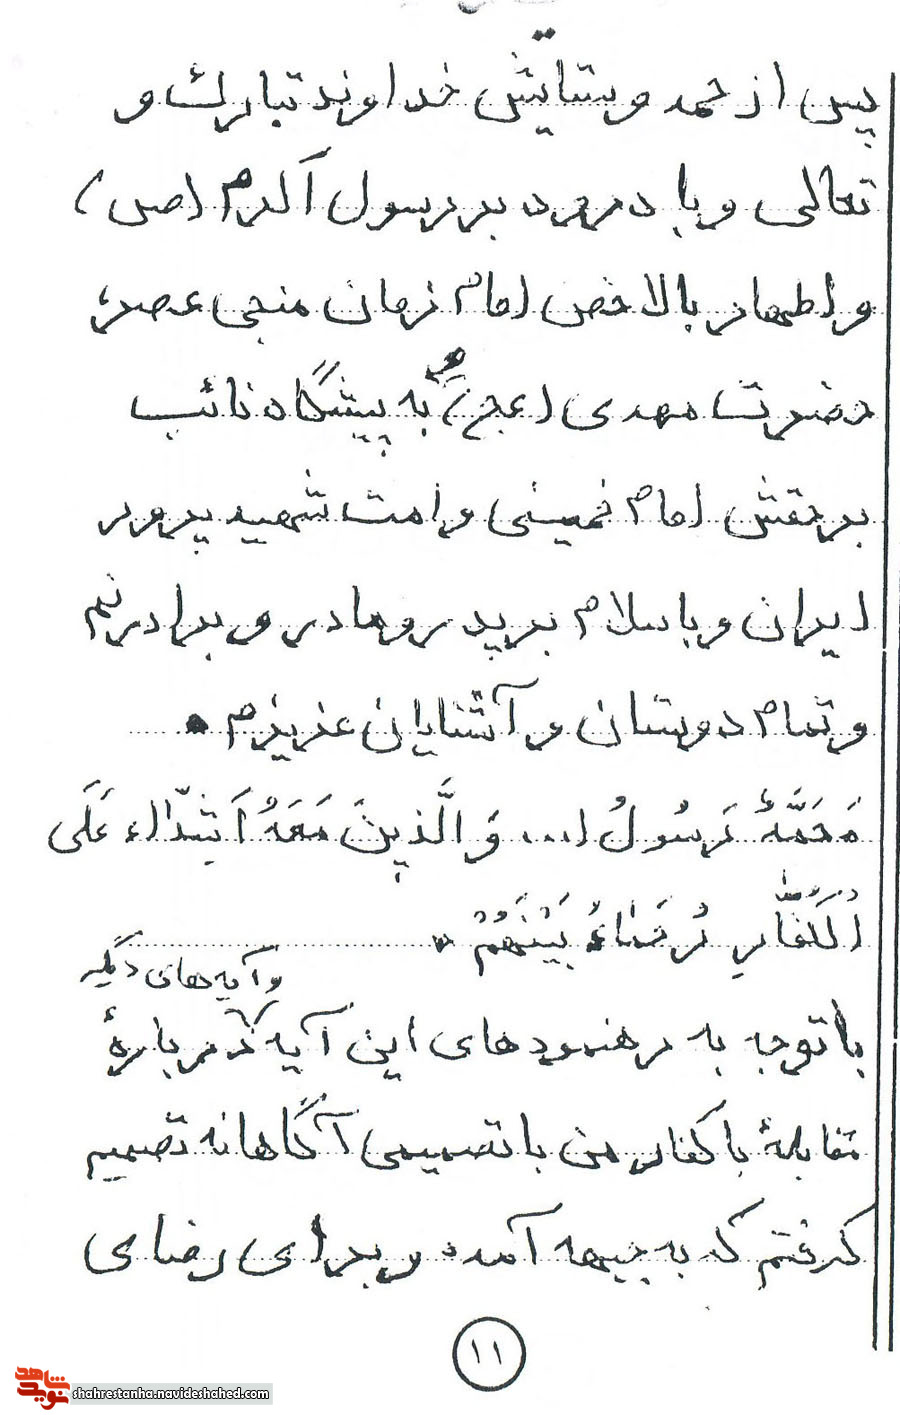 پس از حمد و ستایش خداوند تبارک و
تعالی و با درود بر رسول اکرم (ص)
و اطهار بالاخص امام زمان منجی عصر
حضرت مهدی (عج) و به پیشگاه نائب
بر حقش امام خمینی و امت شهید پرور
ایران و با سلام بر پدر و مادر و برادرنم
و تمام دوستان و آشنایان عزیزم .
مُحَمَّدٌ رَسُولُ ا... وَ الَّذِینَ مَعَهُ اَشِدّاءُ عَلَی
اُلکُفّارِ رُحَماءُ بَیْنَهُمْ .
و آیه های دیگر
با توجه به رهنمودهای این آیه درباره
مقابلهٔ با کفار من با تصمیمی آگاهانه تصمیم
گرفتم که به جبهه آمده و برای رضای
۱۱
نوید شاهد
shahrestanha.navideshahed.com